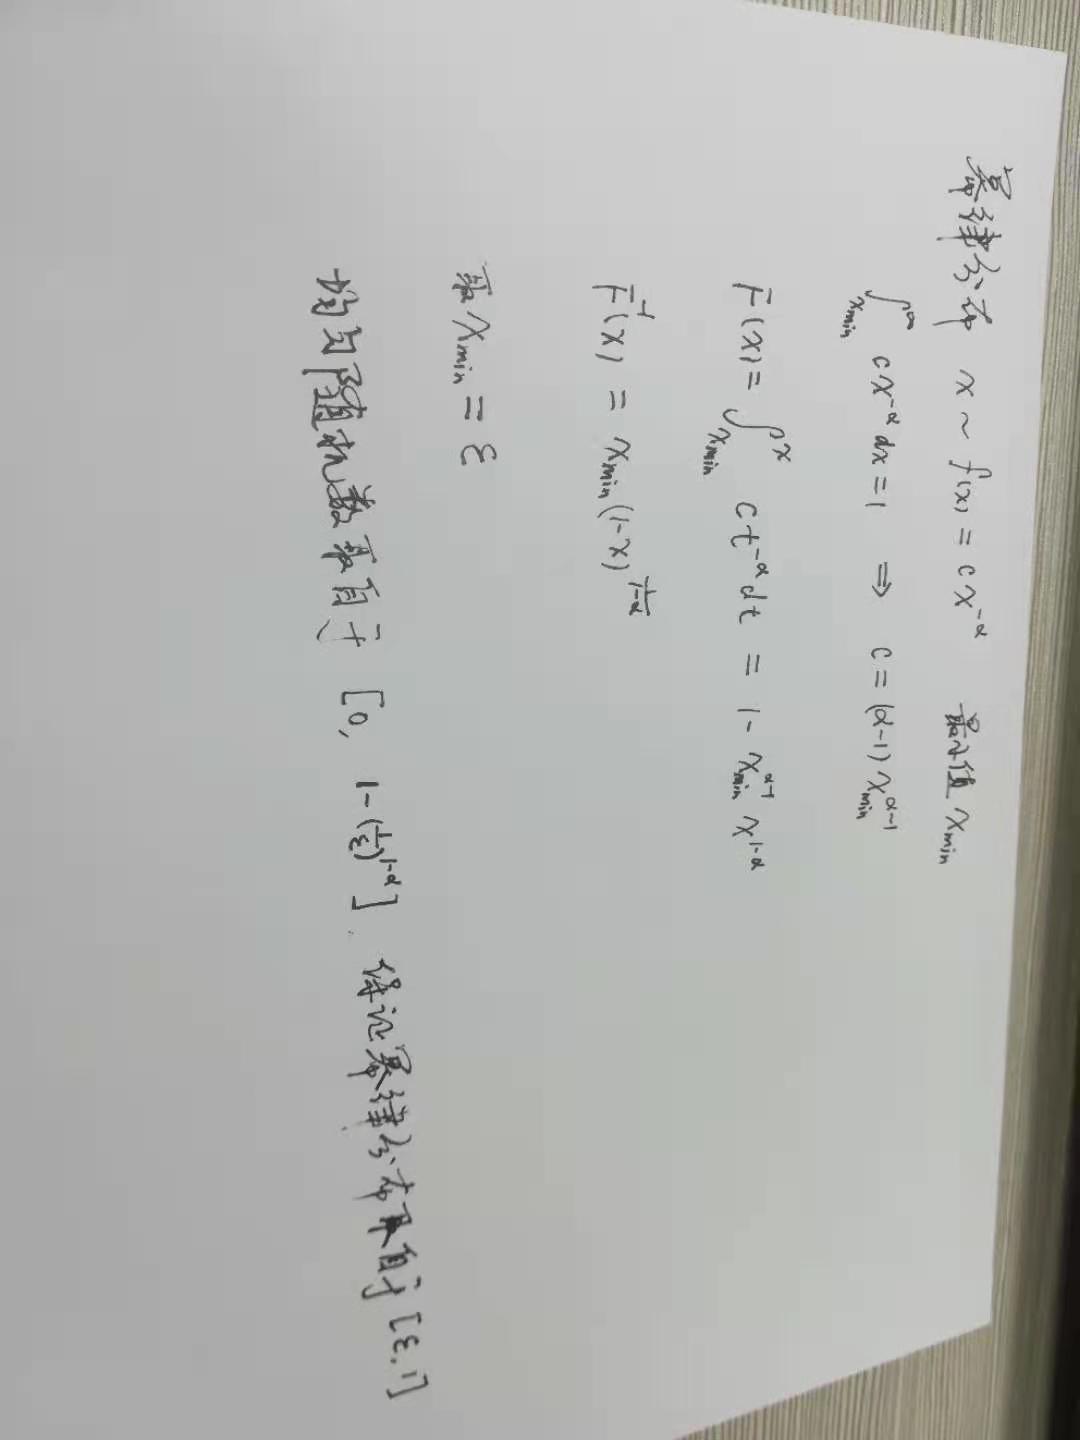 幂律分布 x ~ f(x) = cx^{-α} 最小值 x_{min}
∫_{x_{min}}^{∞} cx^{-α} dx = 1 ⇒ c = (α-1) x_{min}^{α-1}
F(x) = ∫_{x_{min}}^{x} ct^{-α} dt = 1 - x_{min}^{α-1} x^{1-α}
F^{-1}(x) = x_{min} (1-x)^{\frac{1}{1-α}}
取 x_{min} = ε
均匀随机数取自于 [0, 1-(\frac{1}{ε})^{1-α}]. 保证幂律分布取自于 [ε, 1]